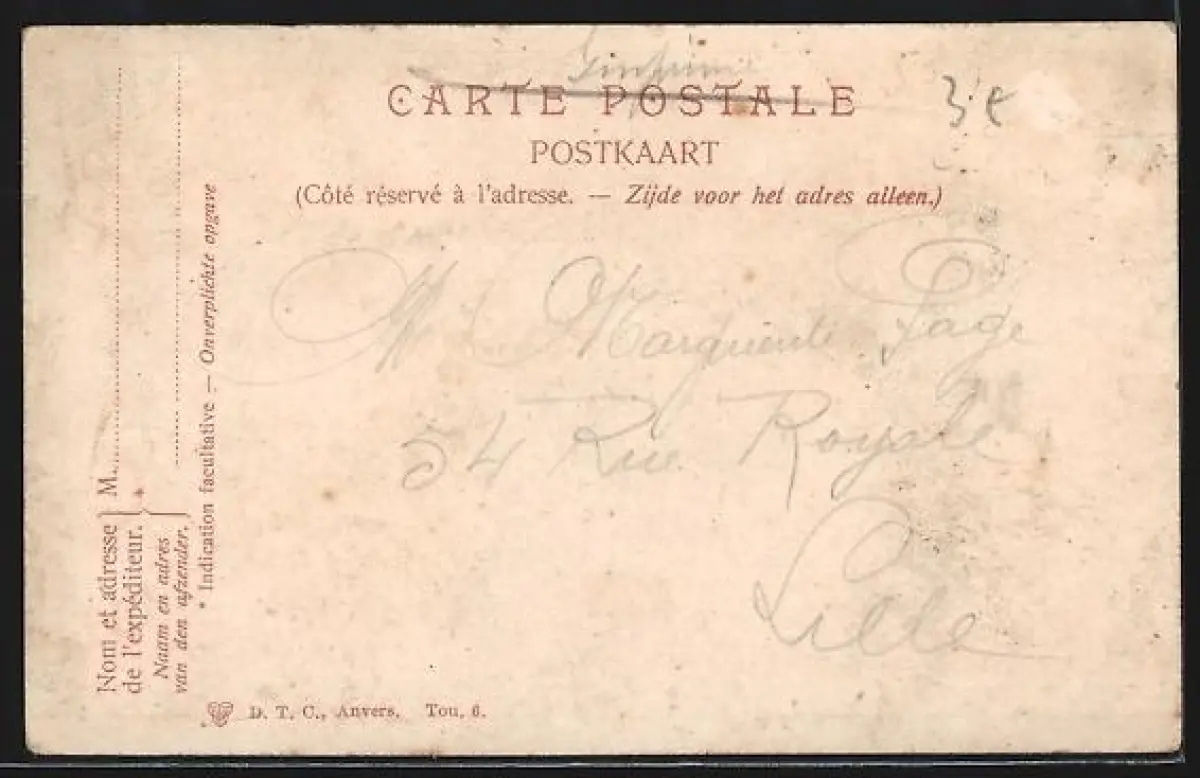 CARTE POSTALE
3 €
POSTKAART
(Côté réservé à l'adresse. — Zijde voor het adres alleen.)
Marguerite Page
54 Rue Royale
Lille
Nom et adresse de l'expéditeur. } M.
Naam en adres van den afzender.
* Indication facultative — Onverplichte opgave
D. T. C., Anvers. Tou. 6.